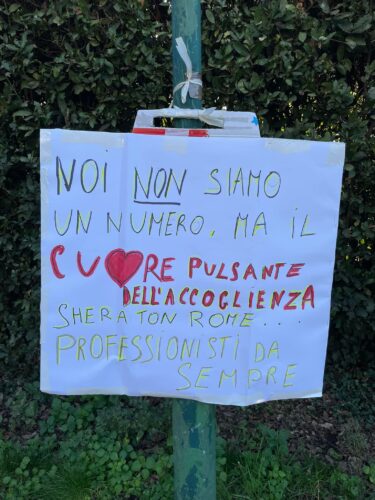 NOI NON SIAMO
UN NUMERO, MA IL
CU❤RE PULSANTE
DELL'ACCOGLIENZA
SHERATON ROME...
PROFESSIONISTI DA
SEMPRE